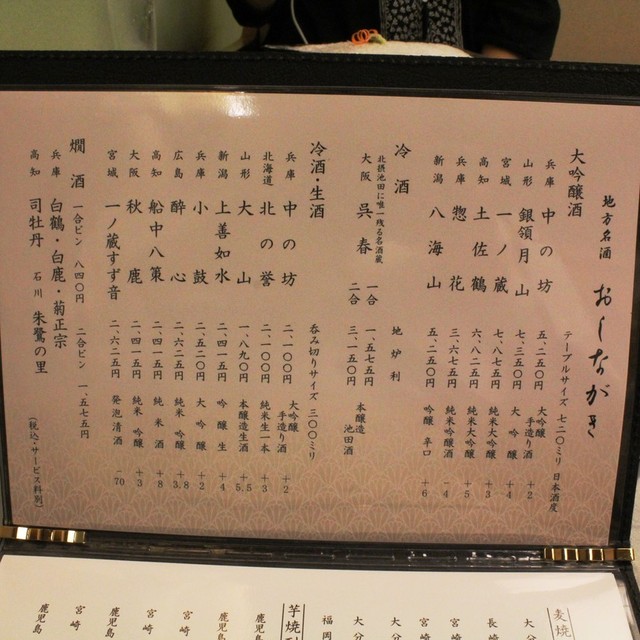 地方名酒 おしながき
大吟醸酒 テーブルサイズ 七二〇ミリ 日本酒度
兵庫 中の坊 五、二五〇円 大吟醸 手造り酒 +2
山形 銀嶺月山 七、三五〇円 大吟醸 +4
宮城 一ノ蔵 七、八七五円 純米大吟醸 +3
高知 土佐鶴 六、八二五円 純米大吟醸 +5
兵庫 惣花 三、六七五円 純米吟醸酒 -4
新潟 八海山 五、二五〇円 吟醸 辛口 +6
冷酒 地炉利
北摂池田に唯一残る名酒蔵
大阪 呉春 一合 一、五七五円 本醸造 池田酒
二合 三、一五〇円
冷酒・生酒 呑み切りサイズ 三〇〇ミリ
兵庫 中の坊 二、一〇〇円 大吟醸 手造り酒 +2
北海道 北の誉 二、一〇〇円 純米生一本 +3
山形 大山 一、八九〇円 本醸造生酒 +5.5
新潟 上善如水 二、四一五円 吟醸生 +4
兵庫 小鼓 二、五二〇円 大吟醸 +2
広島 酔心 二、六二五円 純米吟醸 +3.8
高知 船中八策 二、四一五円 純米酒 +8
大阪 秋鹿 二、四一五円 純米吟醸 +3
宮城 一ノ蔵すず音 二、六二五円 発泡清酒 -70
燗酒 一合ビン 八四〇円 二合ビン 一、五七五円
兵庫 白鶴・白鹿・菊正宗
高知 司牡丹 石川 朱鷺の里
(税込・サービス料別)
大分
長崎
宮崎
宮崎
大分
大分
福岡
鹿児島
鹿児島
宮崎
宮崎
鹿児島
宮崎
鹿児島